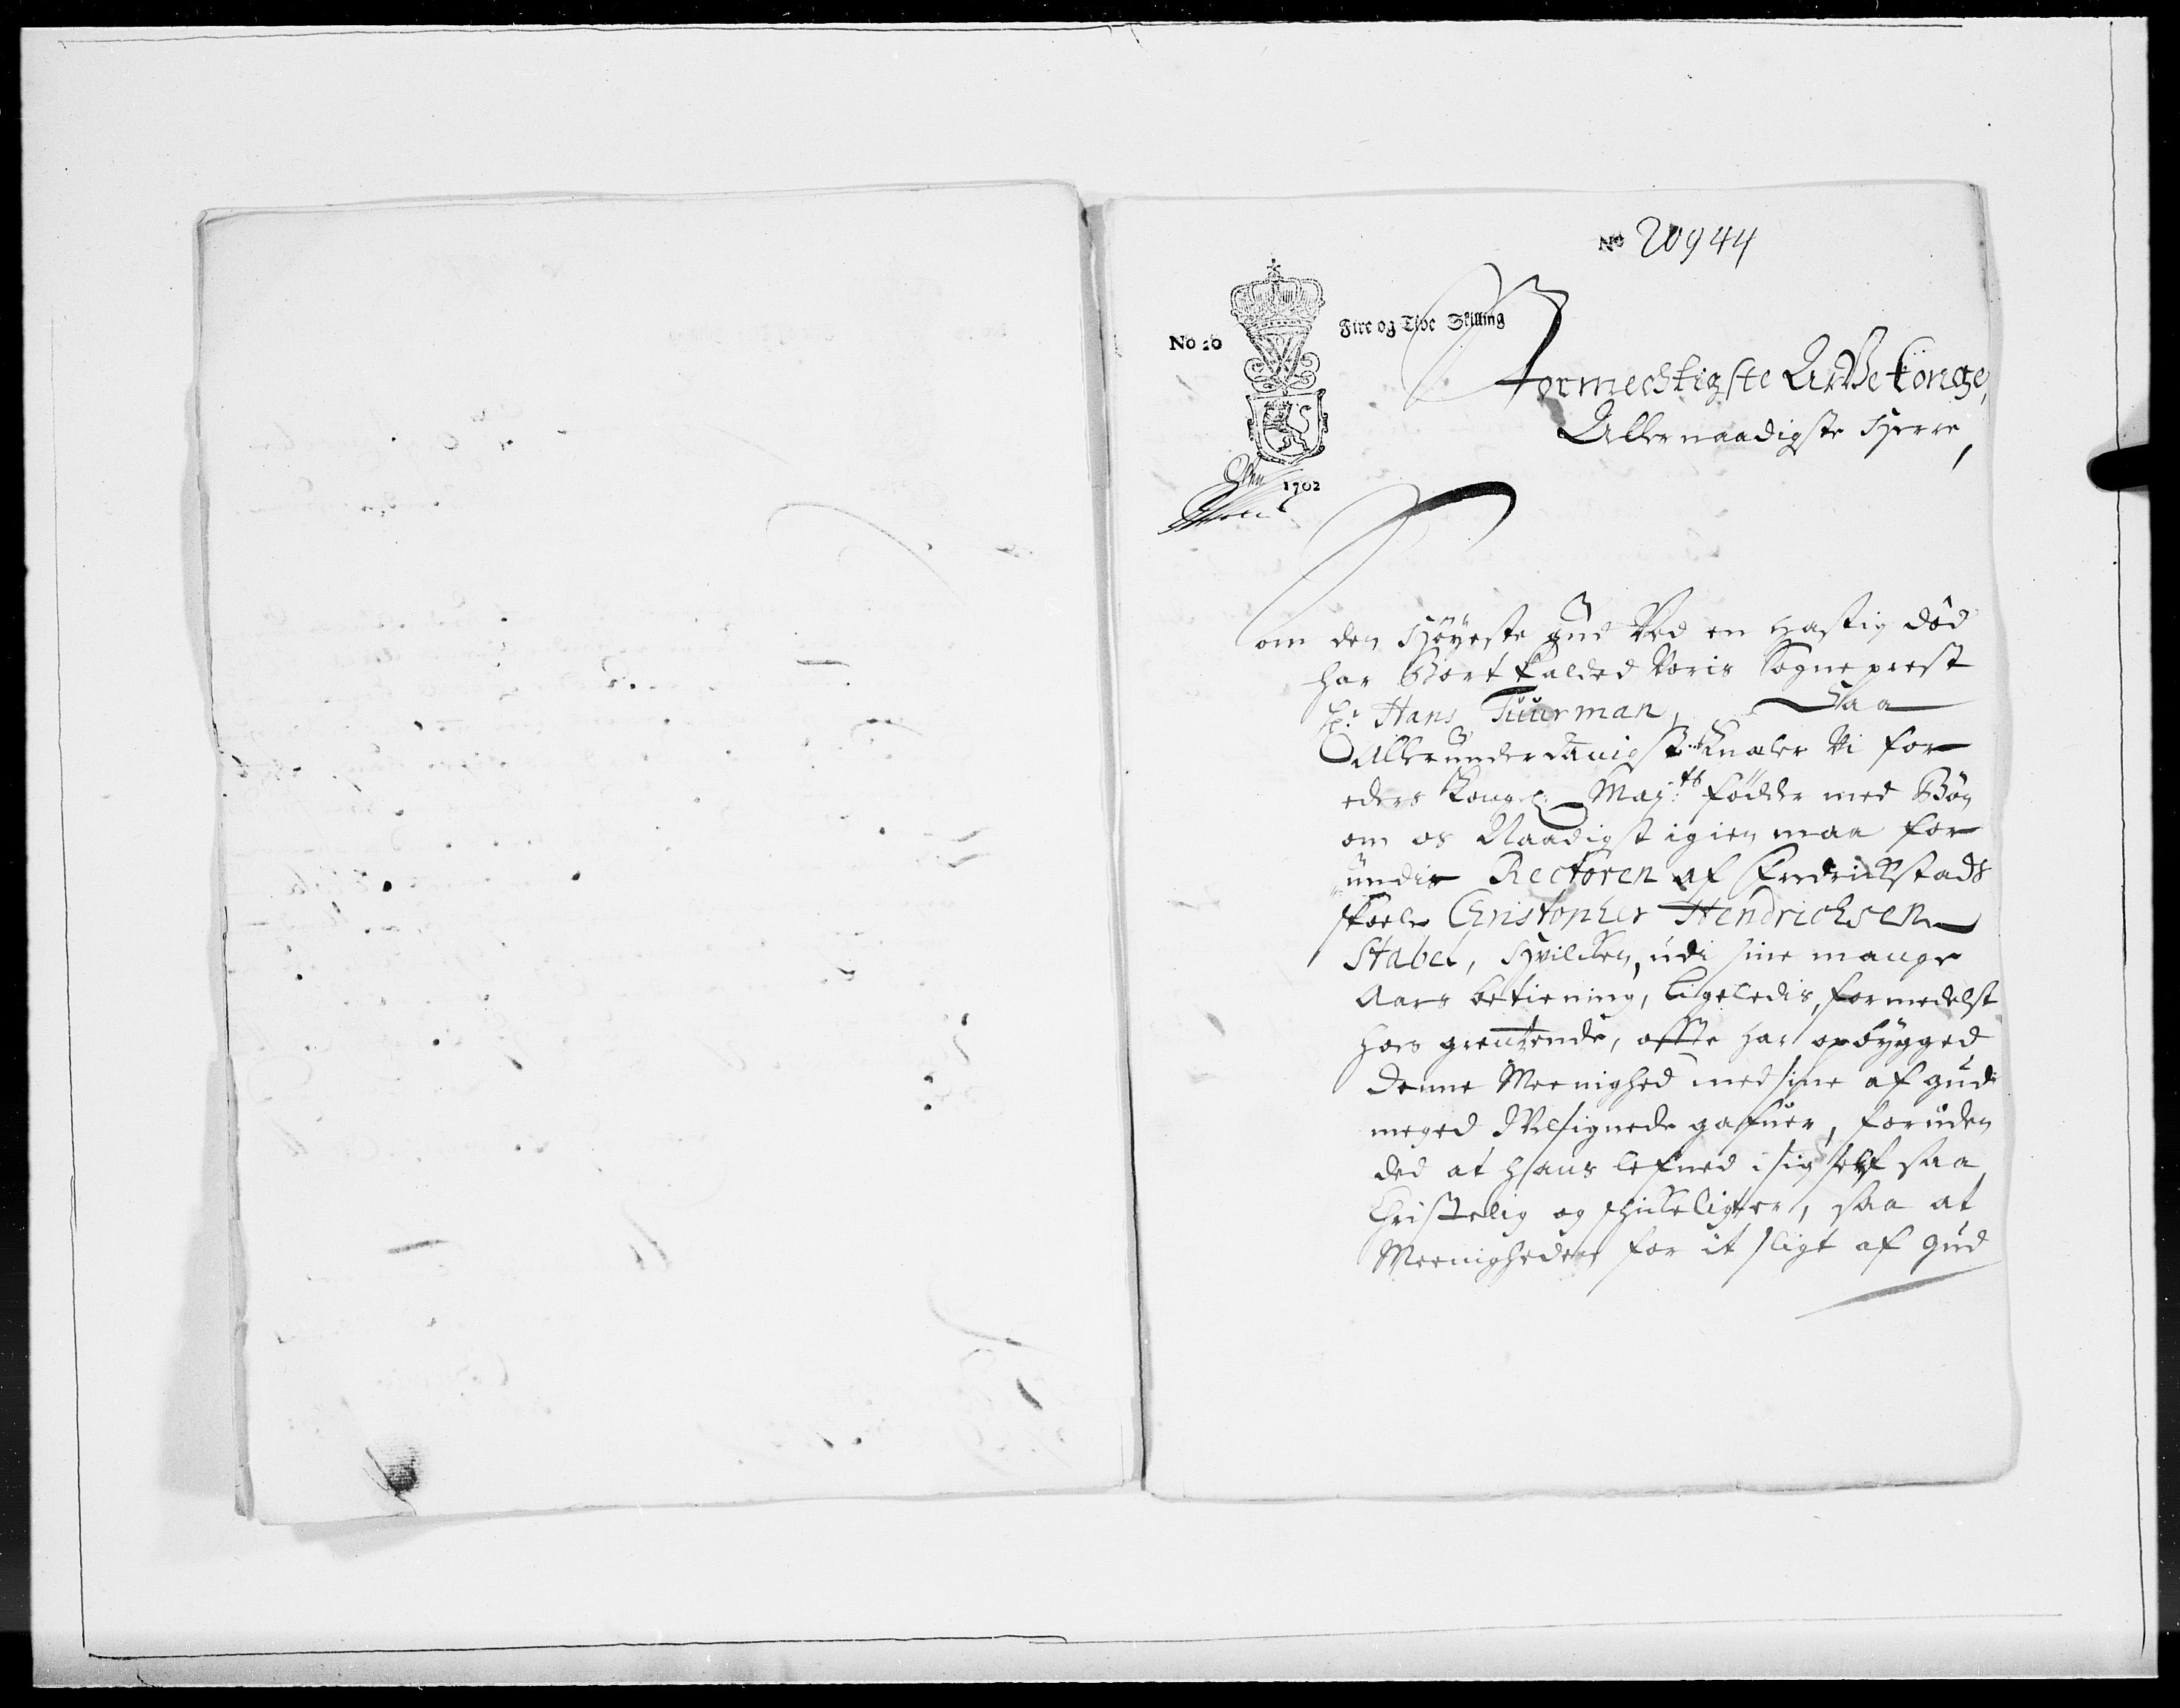 No 20944
No 20
Fire og Tive Skilling
1702
Stormechtigste Arfve Konge,
Allernaadigste Herre,
Som den Høyeste Gud Ved en hastig død
har Bort kalded Voris Sogneprest
Hr. Hans Tuurman, Saa
Allerunderdanigst Knæler Vi for
eders Kongl. Maj:ts Fødder med Bøn
om os Naadigst igien maa for
undis Rectoren af Fredrickstads
skoele Christopher Hendrichsen
Stabel, Hvilcken, udi sine mange
Aars betiening, ligeledis, formedelst
hos grentzende, offte har opbygged
denne Meenighed med sine af Gud
meged Velsignede gafuer, foruden
ded at hans lefned i sig self saa
Christelig og skickelig er, saa at
Meenigheden for it sligt af Gud